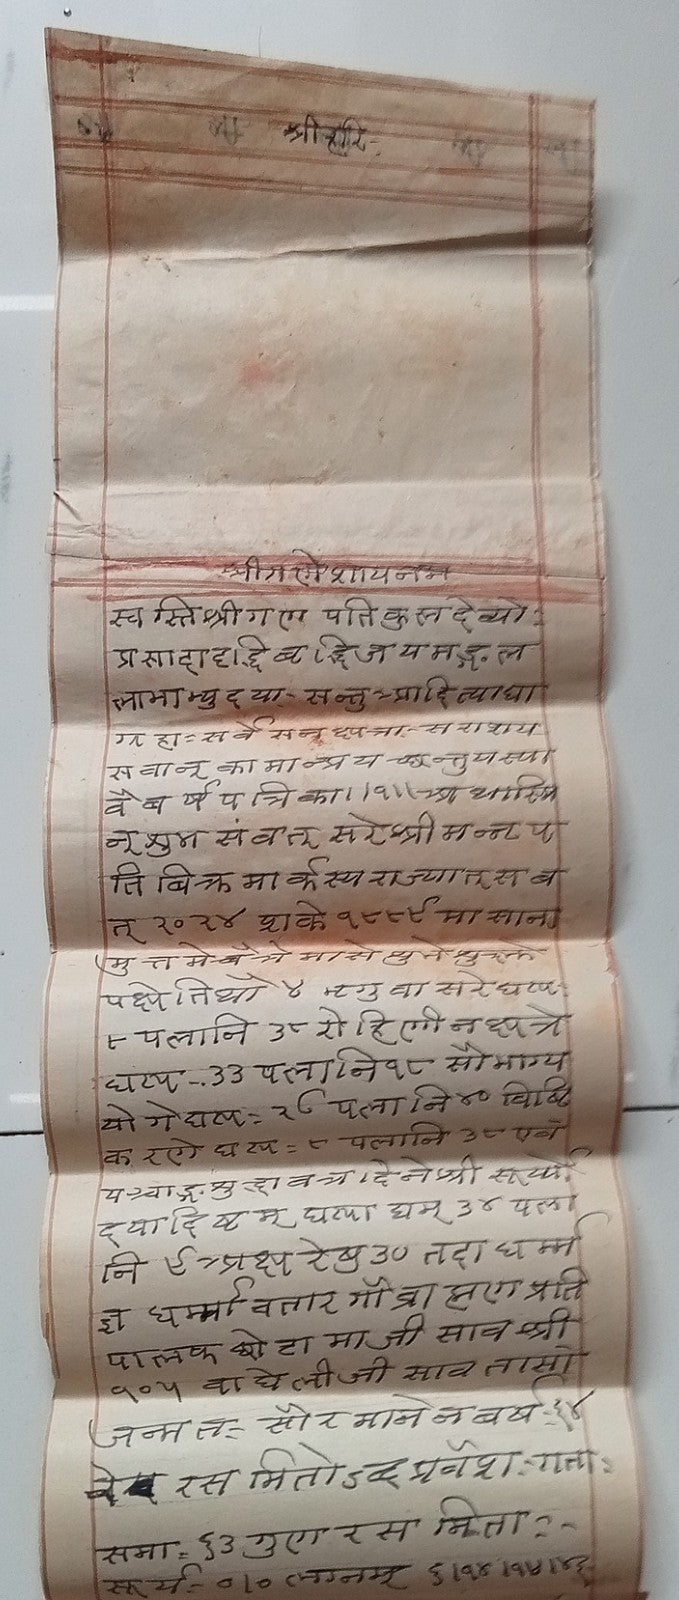 श्रीहरि:
श्रीगणेशायनम
स्वस्तिश्रीगणपतिकुलदेव्यो:
प्रसादाद्दद्धिवद्धिजयमङ्गल
लाभाभ्युदया:सन्तुआदित्याद्या
ग्रहा:सर्वेसनक्षत्रा:सराशय
सवानकामान्प्रयछन्तुयस्या
वैवर्षपत्रिका।।१।।अथास्मि
न्शुभसंवत्सरेश्रीमन्नटप
तिविक्रमार्कस्यराज्यात्सव
त् २०२४ शाके १८८९ मासाना
मुत्तमेचैत्रेमासेशुभेशुक्ले
पक्षेतिथौ ४ भृगुवासरेघट्य:
८ पलानि ३८ रोहिणीनक्षत्रे
घट्य-:३३ पलानि १८ सौभाग्य
योगेघट्य: २६ पलानि ४० विष्टि
करणेघट्य: ८ पलानि ३८ एवं
पञ्चाङ्गशुद्धावत्रदिनेश्रीसूर्यो
दयादिष्टम् घट्याद्यम् ३४ पला
नि ९ अक्षरेषु ३० तदाधर्म्म
ज्ञ धर्म्मावतार गौब्राह्मणप्रति
पालक छोटा माजी साब श्री
१०५ वाघेलीजी साब तासां
जन्मत: सौरमानेनवर्ष:६४
वेद रसमितोऽब्दप्रवेश:गता:
समा:६३ गुणरसमिता:-
सूर्य:-०।० लग्नम् ६।१४।१५।४६